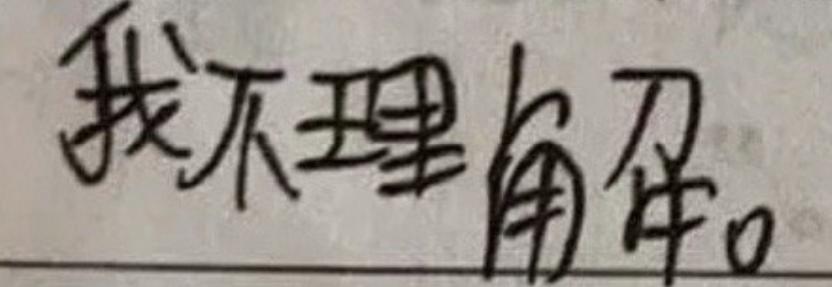 我不理解。